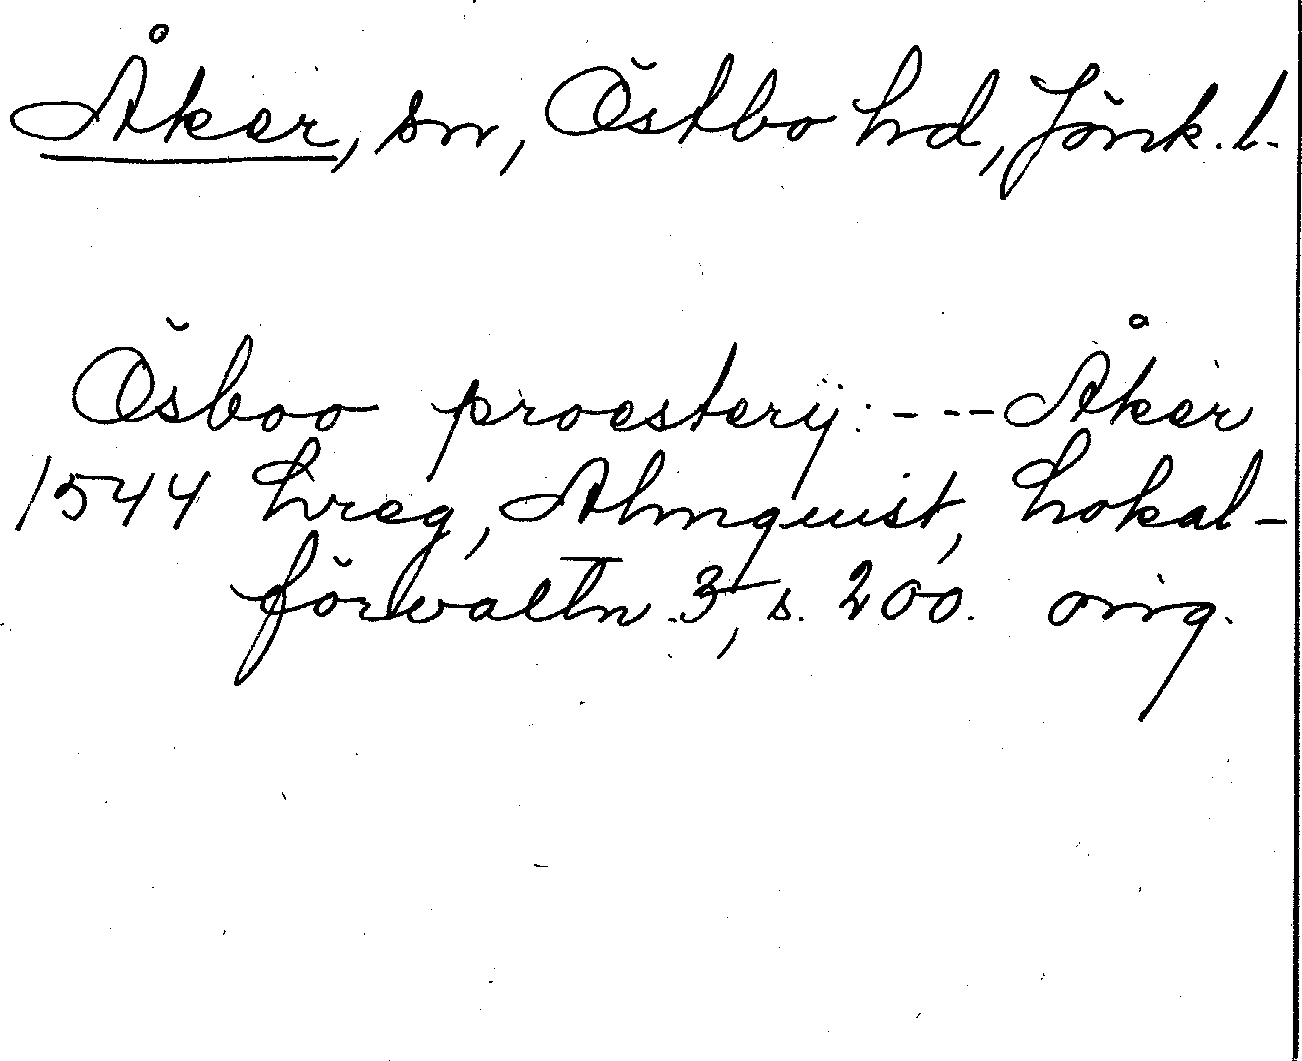 Åker, sn, Östbo hd, Jönk. l.
Ösboo proesterij: --- Åker
1544 Lreg, Almquist, Lokal-
förvaltn. 3, s. 200. orig.